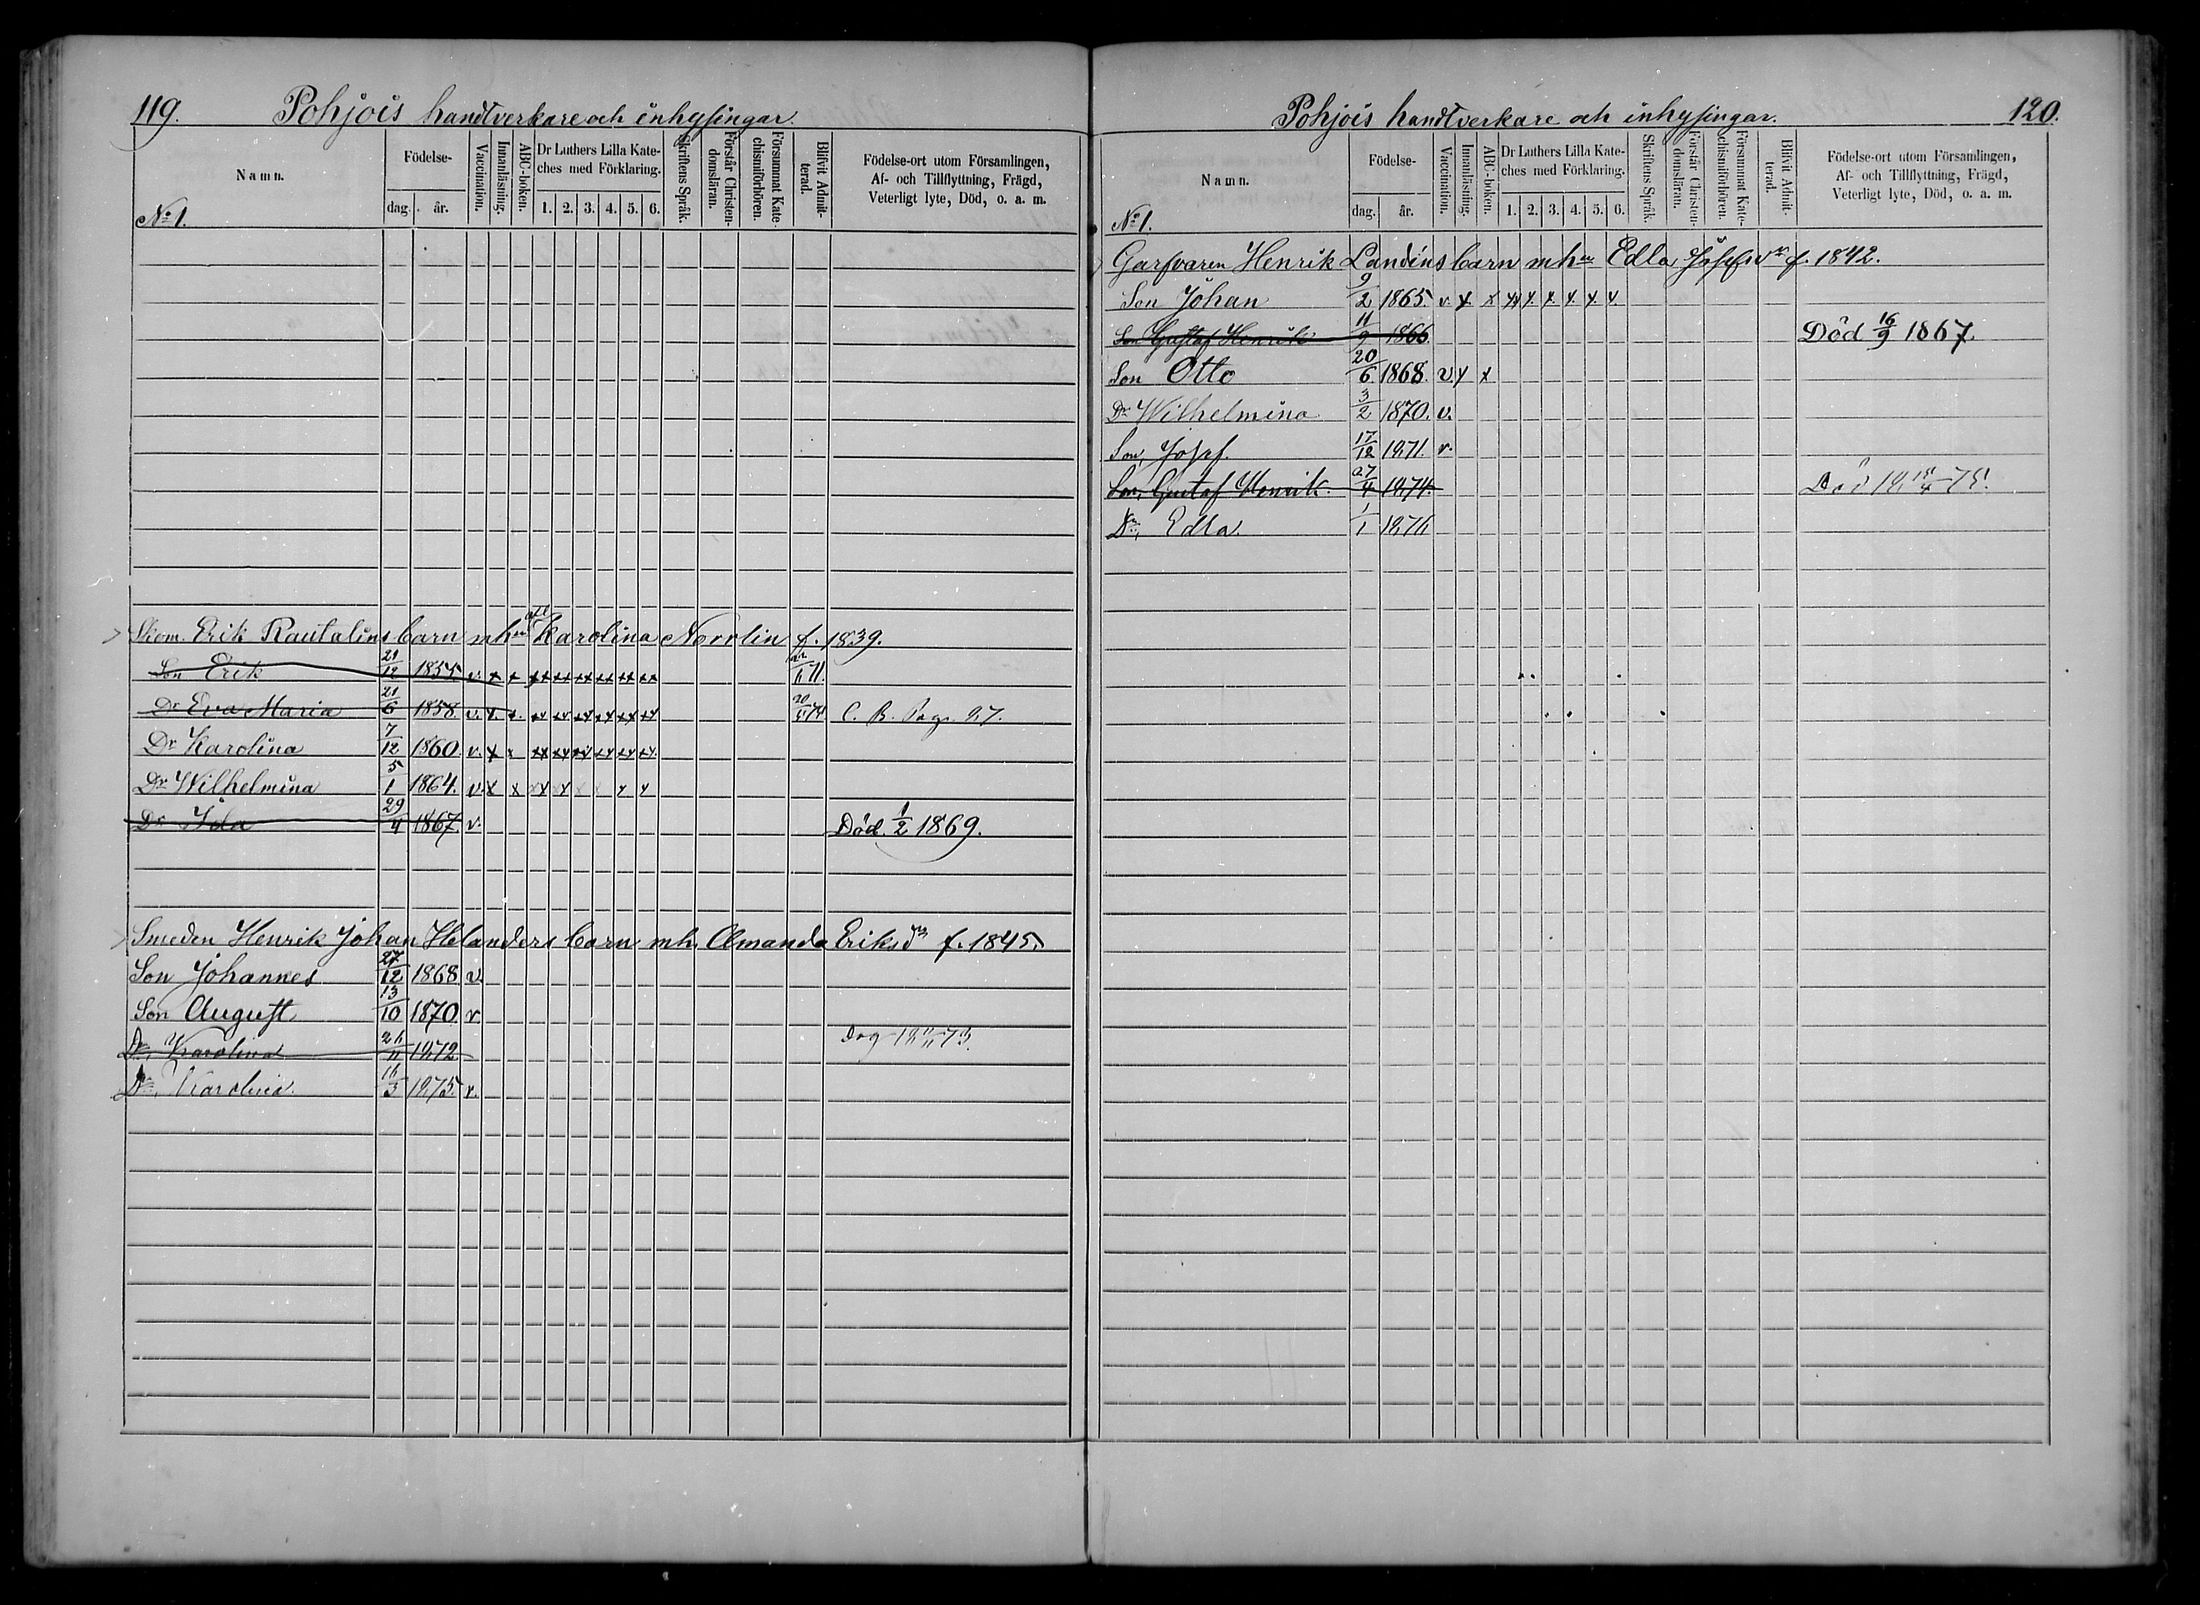 119. Pohjois handtverkare och inhysingar.
Namn.
Födelse-
dag. år.
Vaccination.
Innanläsning.
ABC-boken.
Dr Luthers Lilla Kate-
ches med Förklaring.
1. 2. 3. 4. 5. 6.
Skriftens Språk.
Förstår Christen-
domsläran.
Försummat Kate-
chismiförhören.
Blifvit Admit-
terad.
Födelse-ort utom Församlingen,
Af- och Tillflyttning, Frägd,
Veterligt lyte, Död, o. a. m.
No 1.
Skom. Erik Rautalins barn mh Karolina Norrlin f. 1839.
Son Erik 21/12 1855 v. x x xx xx xx xx xx xx 71
Dr Eva Maria 21/6 1858. v. x. x. xx xx xx xx xx xx 74 C. B. Pag. 27.
Dr Karolina 7/12 1860. v. x xx xx xx xx xx xx
Dr Wilhelmina 5/1 1864. v. x x xx xx x x x x
Dr Ida 29/4 1867. v. Död. 1/2 1869.
Smeden Henrik Johan Helanders barn mh. Amanda Eriksdr f. 1845.
Son Johannes 27/12 1868 v.
Son August 13/10 1870 v.
Dr, Karolina 26/11 1872 73.
Dr, Karolina. 16/3 1875. v.
Pohjois handtverkare och inhysingar. 120.
Namn.
Födelse-
dag. år.
Vaccination.
Innanläsning.
ABC-boken.
Dr Luthers Lilla Kate-
ches med Förklaring.
1. 2. 3. 4. 5. 6.
Skriftens Språk.
Förstår Christen-
domsläran.
Försummat Kate-
chismiförhören.
Blifvit Admit-
terad.
Födelse-ort utom Församlingen,
Af- och Tillflyttning, Frägd,
Veterligt lyte, Död, o. a. m.
No 1.
Garfvaren Henrik Landins barn mh Edla f. 1842.
Son Johan 9/2 1865 v. x x xx x. x. x. x x.
Son Gustaf Henrik 11/9 1866 Död 16/9 1867.
Son Otto 20/6 1868. v. x x
Dr Wilhelmina 3/2 1870. v.
Son, Josef. 17/12 1871. v.
Son, Gustaf Henrik. 27/4 1874. Död
Dr, Edla. 1/1 1876